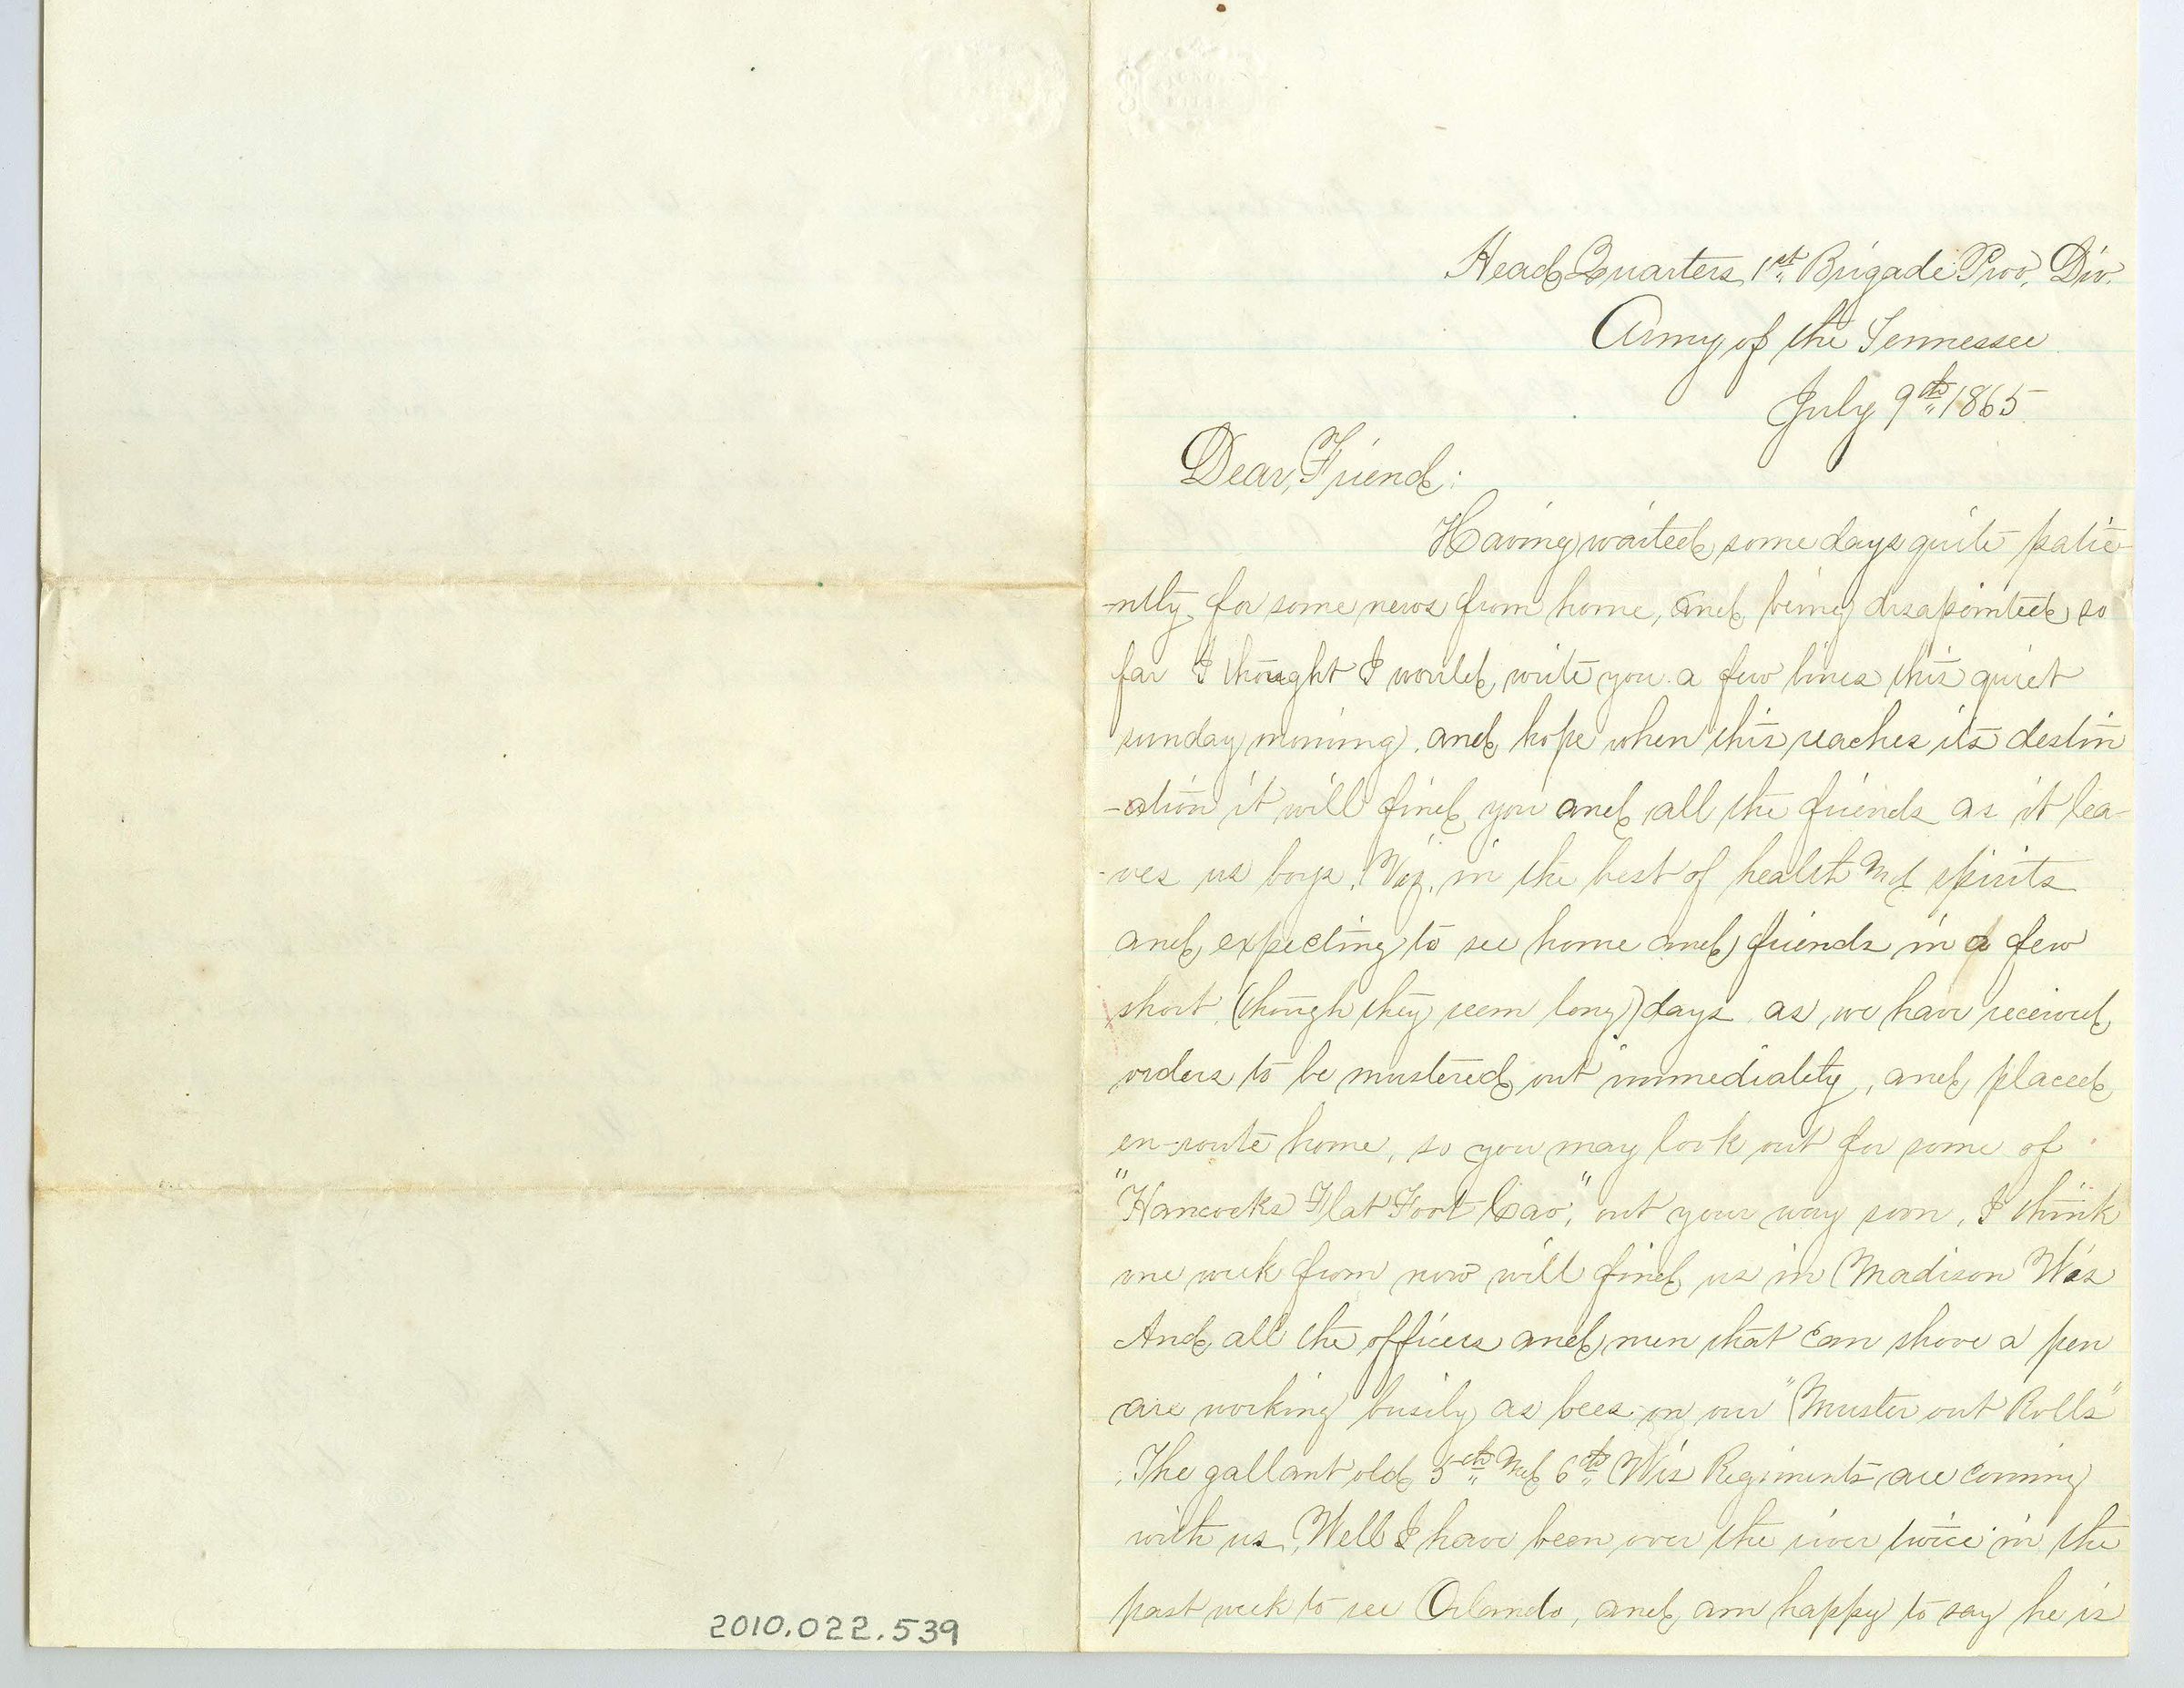 Head Quarters 1st Brigade Prov. Div.
Army of the Tennessee
July 9th 1865
Dear, Friend:
Having waited some days quite patie-
-ntly for some news from home, and being disapointed so
far I thought I would write you a few lines this quiet
sunday morning, and hope when this reaches its destin
-ation it will find you and all the friends as it lea-
-ves us boys, Viz, in the best of health and spirits
and expecting to see home and friends in a few
short (though they seem long) days as we have received
orders to be mustered out immediately, and placed
en-route home, so you may look out for some of
"Hancocks Flat Foot Cav," out your way soon, I think
one week from now will find us in Madison Wis
And all the officers and men that can shove a pen
are working busily as bees on our "Muster out Rolls"
The gallant old 5th and 6th Wis Regiments are coming
with us, Well I have been over the river twice in the
past week to see Orlando, and am happy to say he is
2010.022.539